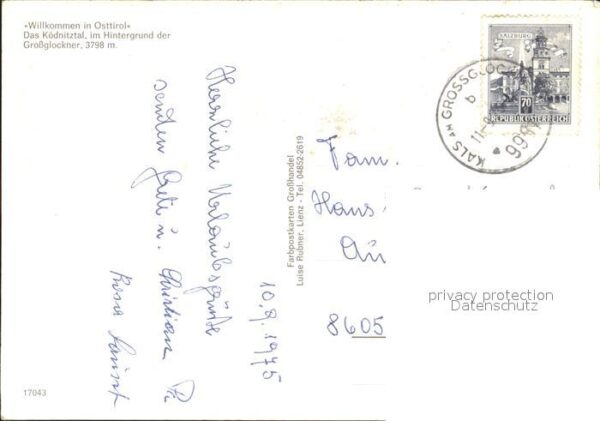 »Willkommen in Osttirol«
Das Ködnitztal, im Hintergrund der
Großglockner, 3798 m.
Herrliche Urlaubsgrüße
senden Grete u. Christiane
Rosa
10.9.1975
17043
Farbpostkarten Großhandel
Luise Rubner, Lienz - Tel. 04852-2619
SALZBURG
70
REPUBLIK ÖSTERREICH
KALS AM GROSSGLOC
b
Fam.
Hans
8605
privacy protection
Datenschutz